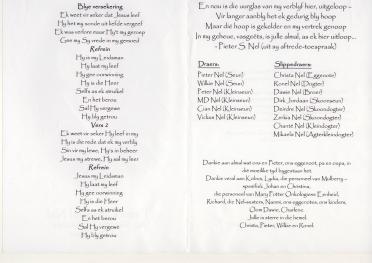 Blye versekering
Ek weet vir seker dat Jesus leef
Hy het my sonde uit liefde vergeef
Ek was verlore maar Hy't my geroep
Gee my Sy vrede in my gemoed
Refrein
Hy is my Leidsman
Hy laat my leef
Hy gee oorwinning
Hy is die Heer
Selfs as ek struikel
En het berou
Sal Hy vergewe
Hy bly getrou
Vers 2
Ek weet vir seker Hy leef in my
Hy is die rede dat ek my verbly
Sin vir my lewe, Hy's in beheer
Jesus my strewe, Hy sal my leer
Refrein
Jesus my Leidsman
Hy laat my leef
Hy gee oorwinning
Hy is die Heer
Selfs as ek struikel
En het berou
Sal Hy vergewe
Hy bly getrou
En nou is die uurglas van my verblyf hier, uitgeloop –
Vir langer aanbly het ek gedurig bly hoop
Maar die hoop is gekelder en my vertrek geroep
In my geheue, vasgeëts, is julle almal, as ek hier uitloop...
- Pieter S. Nel (uit sy aftrede-toespraak)
Draers:
Pieter Nel (Seun)
Wilkie Nel (Seun)
Pieter Nel (Kleinseun)
MD Nel (Kleinseun)
Cian Nel (Kleinseun)
Vickus Nel (Kleinseun)
Slippedraers:
Christa Nel (Eggenote)
Renel Nel (Dogter)
Dawie Nel (Broer)
Dirk Jordaan (Skoonseun)
Deirdre Nel (Skoondogter)
Zerkia Nel (Skoondogter)
Chanté Nel (Kleindogter)
Mikaela Nel (Agterkleindogter)
Dankie aan almal wat ons en Pieter, ons eggenoot, pa en oupa, in
die moeilike tyd bygestaan het.
Dankie veral aan Kobus, Lydia, die personeel van Mulberry –
spesifiek Johan en Christina,
die personeel van Mary Potter Onkologiese Eenheid,
Richard, die Nel-susters, Naomi, ons eggenotes, ons kinders,
Oom Dawie, Charlene.
Julle is sterre in die hemel.
Christa, Pieter, Wilkie en Renel.